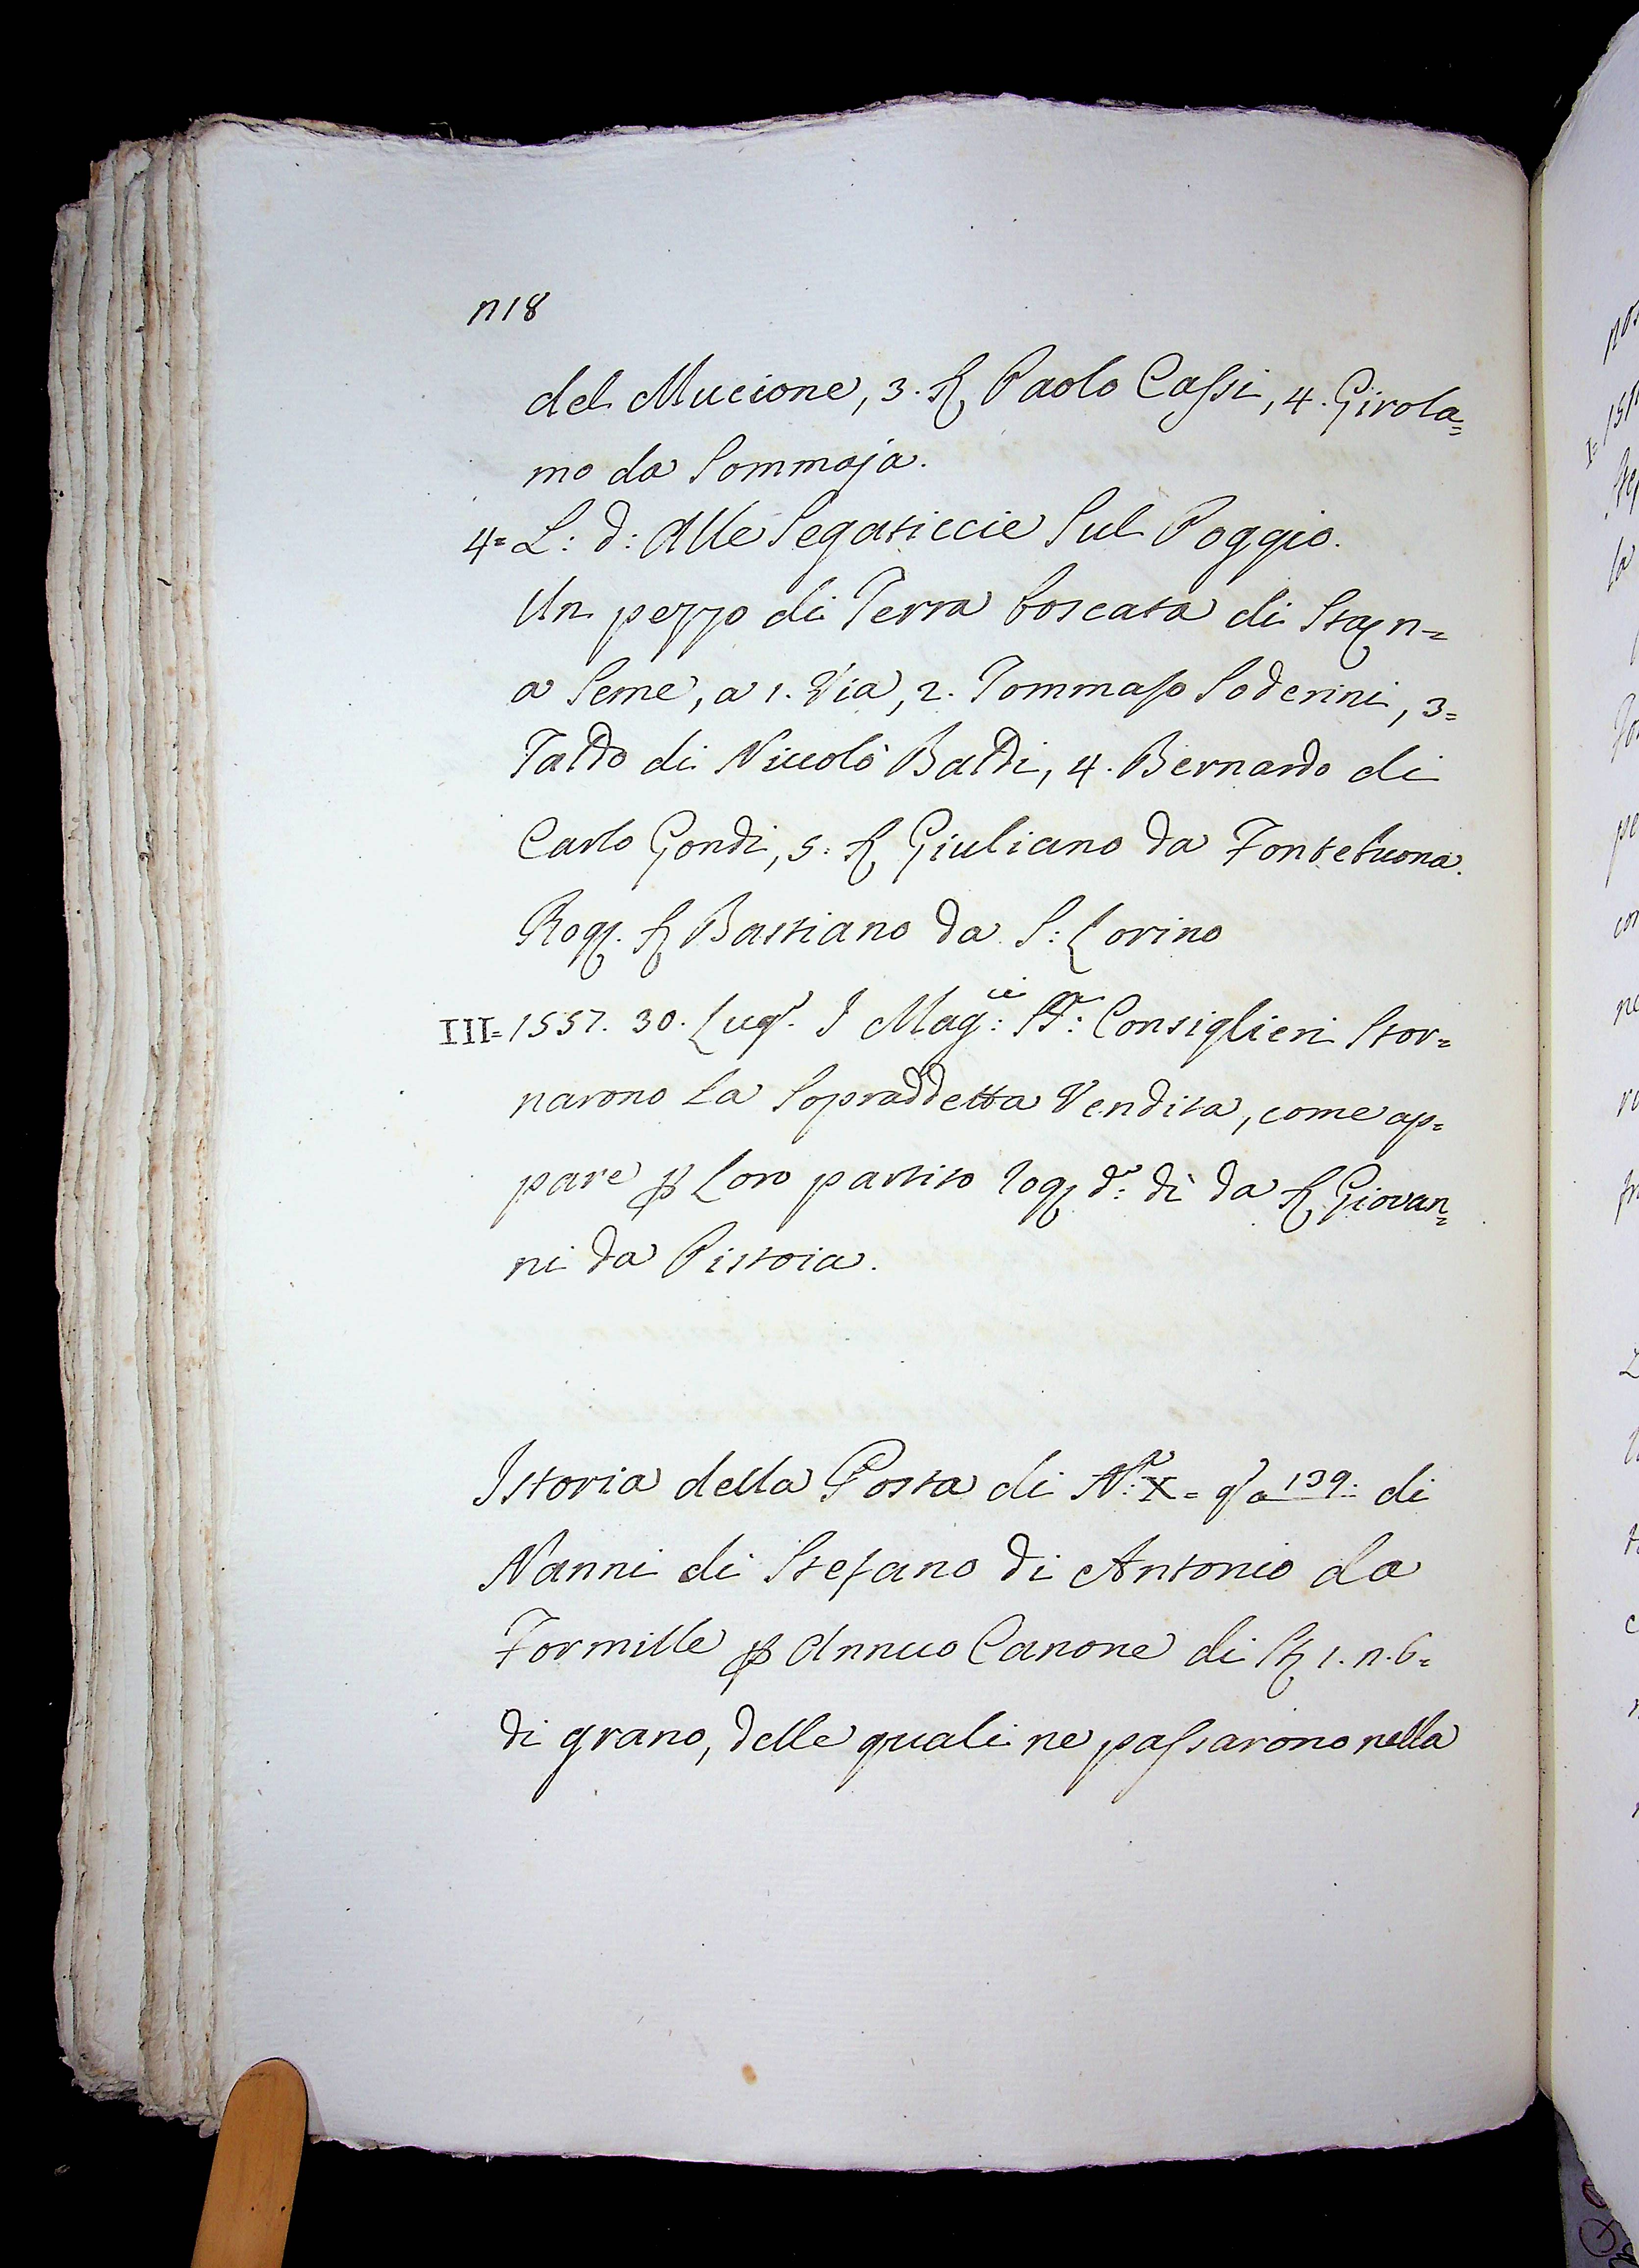 218
del Mucione, 3. Sr Paolo Cassi, 4. Girola=
mo da Sommaja.
4= L: d: Alle Segaticcie Sul Poggio.
Un pezzo di Terra boscata di Staj 2=
a Seme, a 1. Via, 2. Tommaso Soderini, 3=
Taldo di Niccolò Baldi, 4. Bernardo di
Carlo Gondi, 5. Sr Giuliano da Fontebuona.
Rog. Sr Bastiano da S: Lorino
III= 1557. 30. Lugo. I Mag:ci SS:ri Consiglieri Stor=
narono la Sopraddetta Vendita, come ap=
pare p Loro partito rog. do: dì da Sr Giovan=
ni da Pistoia.
Istoria della Posta di N:o X= qo a 139: di
Nanni di Stefano di Antonio da
Formille p Annuo Canone di St 1. 2. 6=
di grano, delle quali ne passarono nella